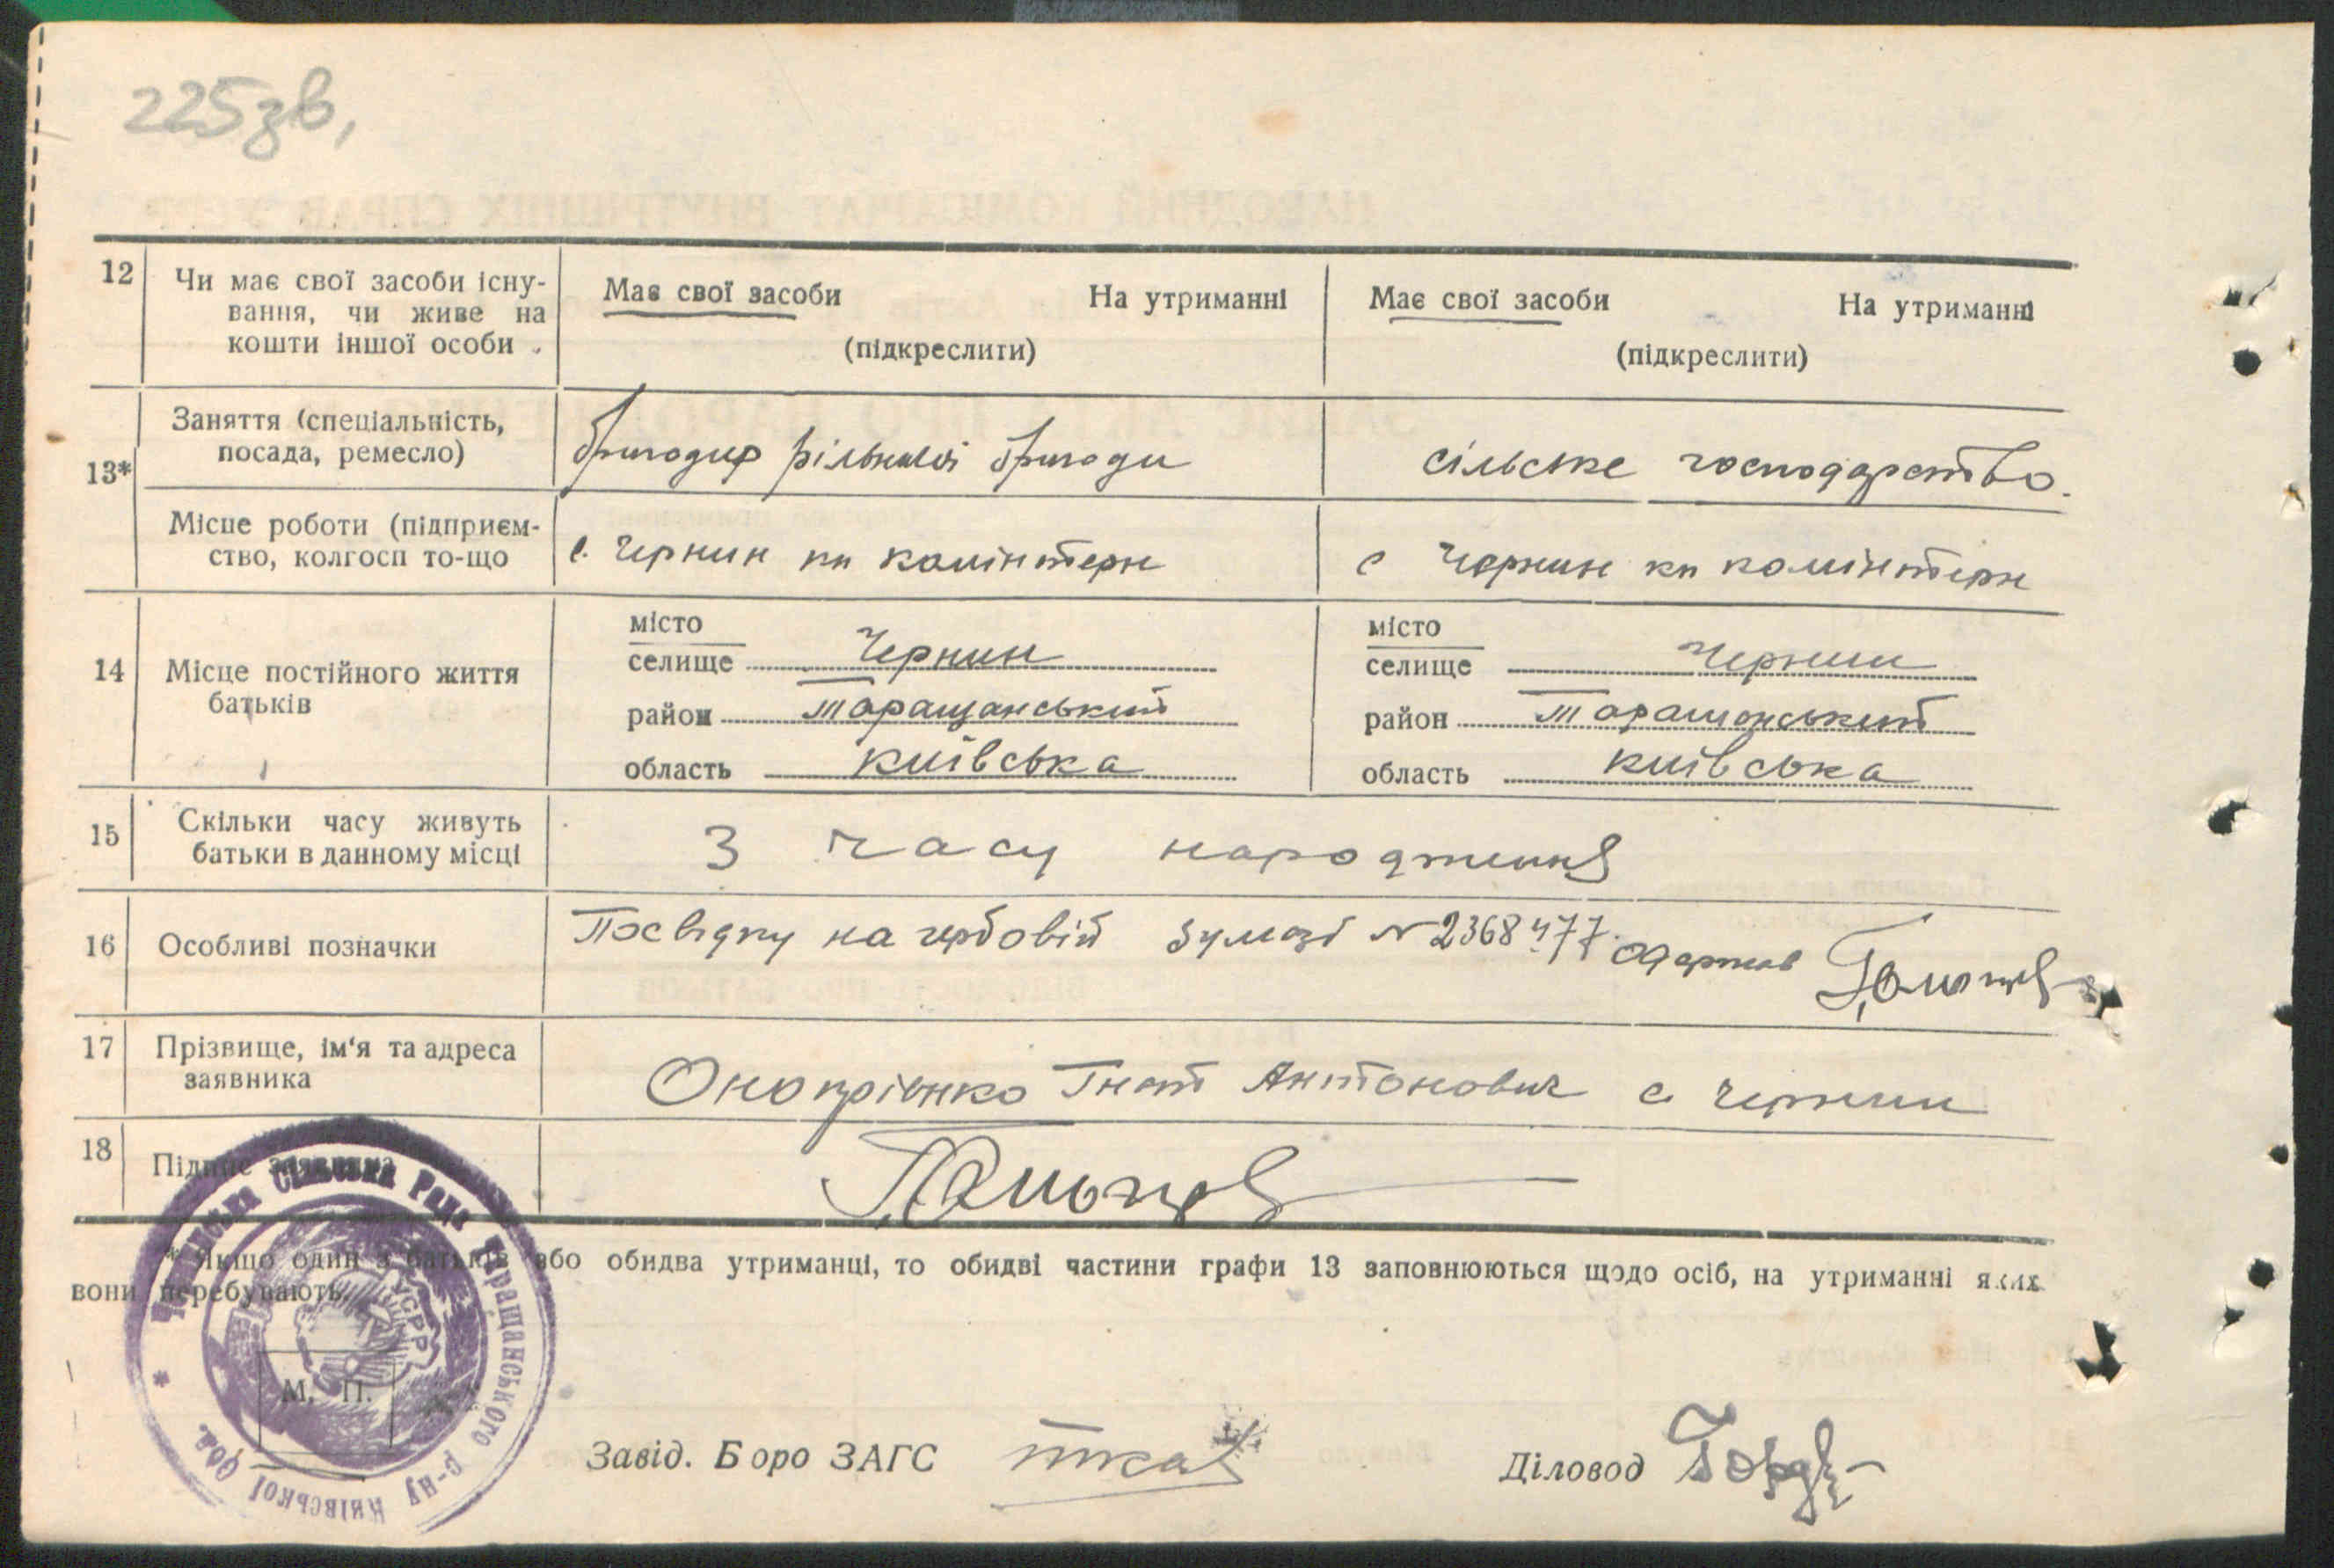 225зв,
12 Чи має свої засоби існу- Має свої засоби На утриманні Має свої засоби На утриманні
вання, чи живе на
кошти іншої особи (підкреслити) (підкреслити)
13* Заняття (спеціальність, посада, ремесло) бригадир рільничої бригади сільське господарство.
Місце роботи (підприєм-
ство, колгосп то-що с. Чернин кп комінтерн с Чернин кп комінтерн
14 Місце постійного життя
батьків
місто місто
селище Чернин селище Чернин
район Таращанський район Таращанський
область київська область київська
15 Скільки часу живуть
батьки в данному місці З часу народження
16 Особливі позначки Посвідку на гербовій бумазі № 2368477 одержав
17 Прізвище, ім'я та адреса
заявника Онопрієнко Гнат Антонович с Чернин
18 Підпис заявника
* Якщо один з батьків або обидва утриманці, то обидві частини графи 13 заповнюються щодо осіб, на утриманні яких
вони перебувають.
Сільська Рада Таращанського р-ну Київської обл.
УСРР
М. П.
Завід. Б оро ЗАГС Діловод